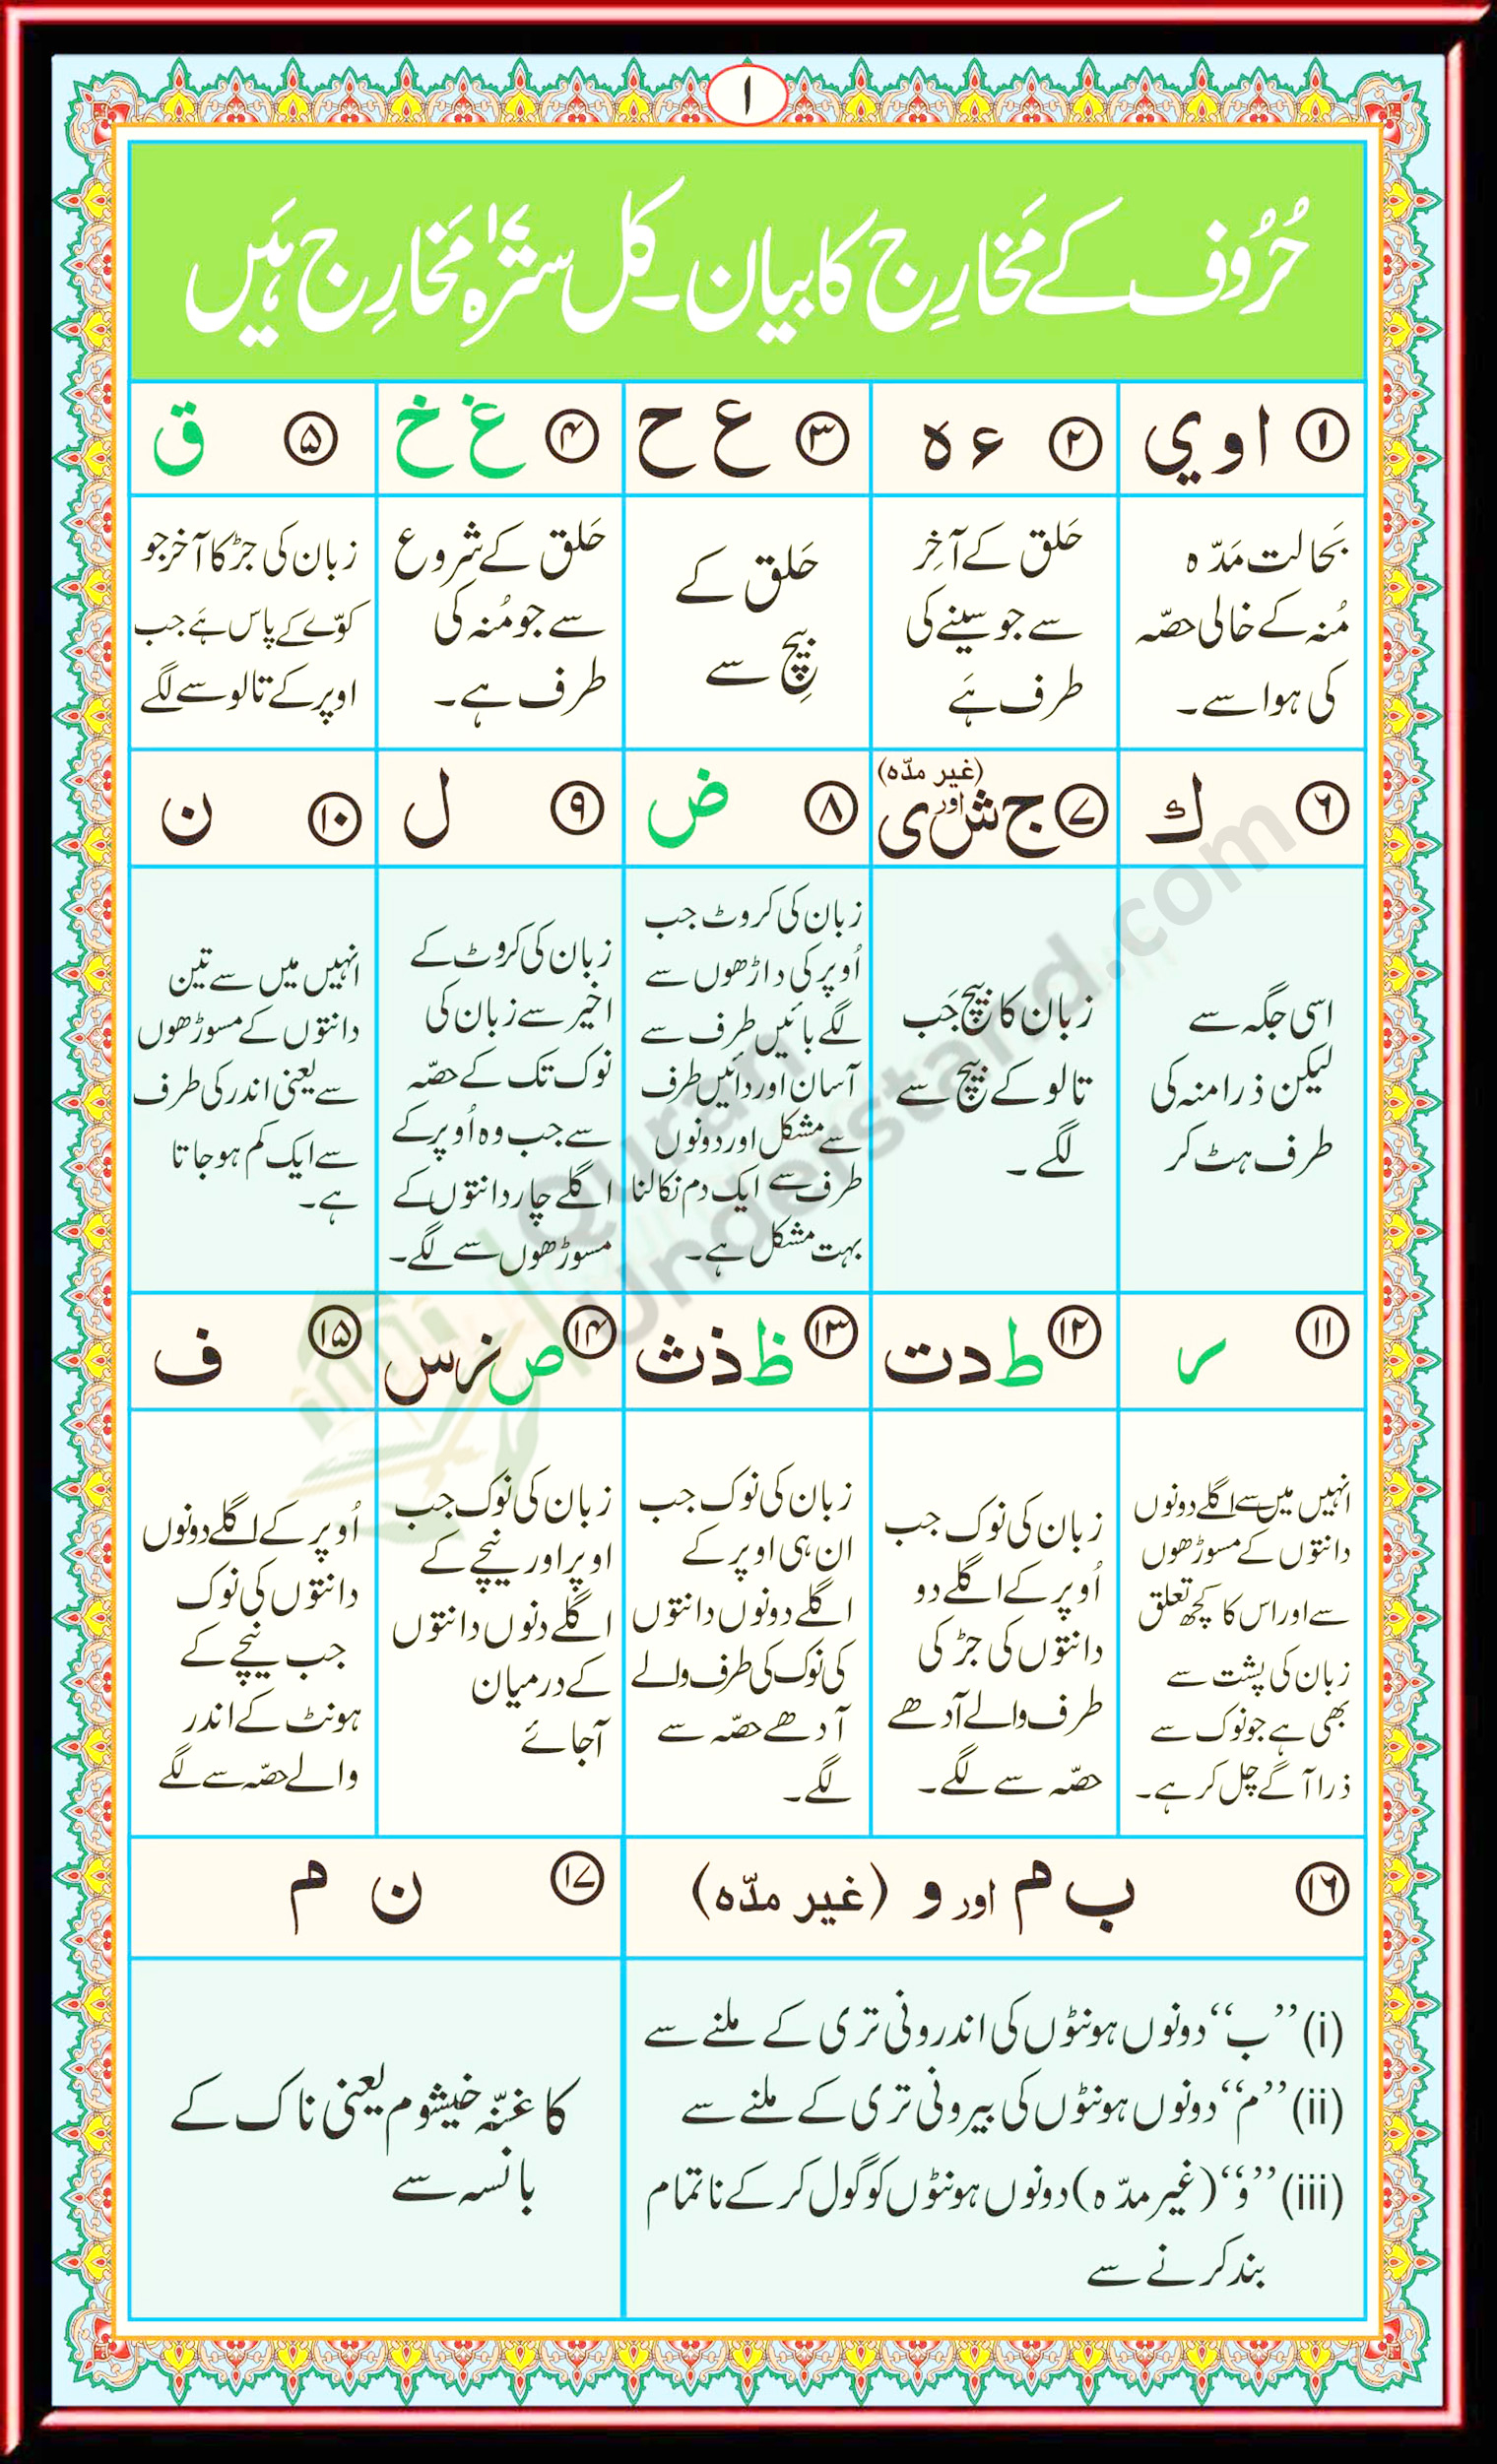 ۱
حُرُوف کے مَخارِج کا بیان۔ کل سترہ ۱۷ مَخارِج ہَیں
۱ ا و ي
بَحالت مَدّہ
مُنہ کے خالی حصّہ
کی ہوا سے۔
۲ ء ہ
حَلق کے آخِر
سے جو سینے کی
طرف ہَے
۳ ع ح
حَلق کے
بِیچ سے
۴ غ خ
حَلق کے شروع
سے جو مُنہ کی
طرف ہے۔
۵ ق
زبان کی جڑ کا آخر جو
کوّے کے پاس ہَے جب
اوپر کے تالو سے لگے
۶ ك
اسی جگہ سے
لیکن ذرا منہ کی
طرف ہٹ کر
۷ ج ش اور ی (غیر مدّہ)
زبان کا بیچ جَب
تالو کے بیچ سے
لگے۔
۸ ض
زبان کی کروٹ جب
اُوپر کی داڑھوں سے
لگے بائیں طرف سے
آسان اور دائیں طرف
سے مشکل اور دونوں
طرف سے ایک دم نکالنا
بہت مشکل ہے۔
۹ ل
زبان کی کروٹ کے
اخیر سے زبان کی
نوک تک کے حصّہ
سے جب وہ اُوپر کے
اگلے چار دانتوں کے
مسوڑھوں سے لگے۔
۱۰ ن
انہیں میں سے تین
دانتوں کے مسوڑھوں
سے یعنی اندر کی طرف
سے ایک کم ہو جاتا
ہے۔
۱۱ ر
انہیں میں سے اگلے دونوں
دانتوں کے مسوڑھوں
سے اور اس کا کچھ تعلق
زبان کی پشت سے
بھی ہے جو نوک سے
ذرا آگے چل کر ہے۔
۱۲ ط د ت
زبان کی نوک جب
اُوپر کے اگلے دو
دانتوں کی جڑ کی
طرف والے آدھے
حصّہ سے لگے۔
۱۳ ظ ذ ث
زبان کی نوک جب
ان ہی اوپر کے
اگلے دونوں دانتوں
کی نوک کی طرف والے
آدھے حصّہ سے
لگے۔
۱۴ ص ز س
زبان کی نوک جب
اوپر اور نیچے کے
اگلے دنوں دانتوں
کے درمیان
آجائے
۱۵ ف
اُوپر کے اگلے دونوں
دانتوں کی نوک
جب نیچے کے
ہونٹ کے اندر
والے حصّہ سے لگے
۱۶ ب م اور و (غیر مدّہ)
(i) ”ب“ دونوں ہونٹوں کی اندرونی تری کے ملنے سے
(ii) ”م“ دونوں ہونٹوں کی بیرونی تری کے ملنے سے
(iii) ”و“ (غیر مدّہ) دونوں ہونٹوں کو گول کر کے ناتمام
بند کرنے سے
۱۷ ن م
کا غنّہ خیشوم یعنی ناک کے
بانسہ سے
Quran
Understand.com